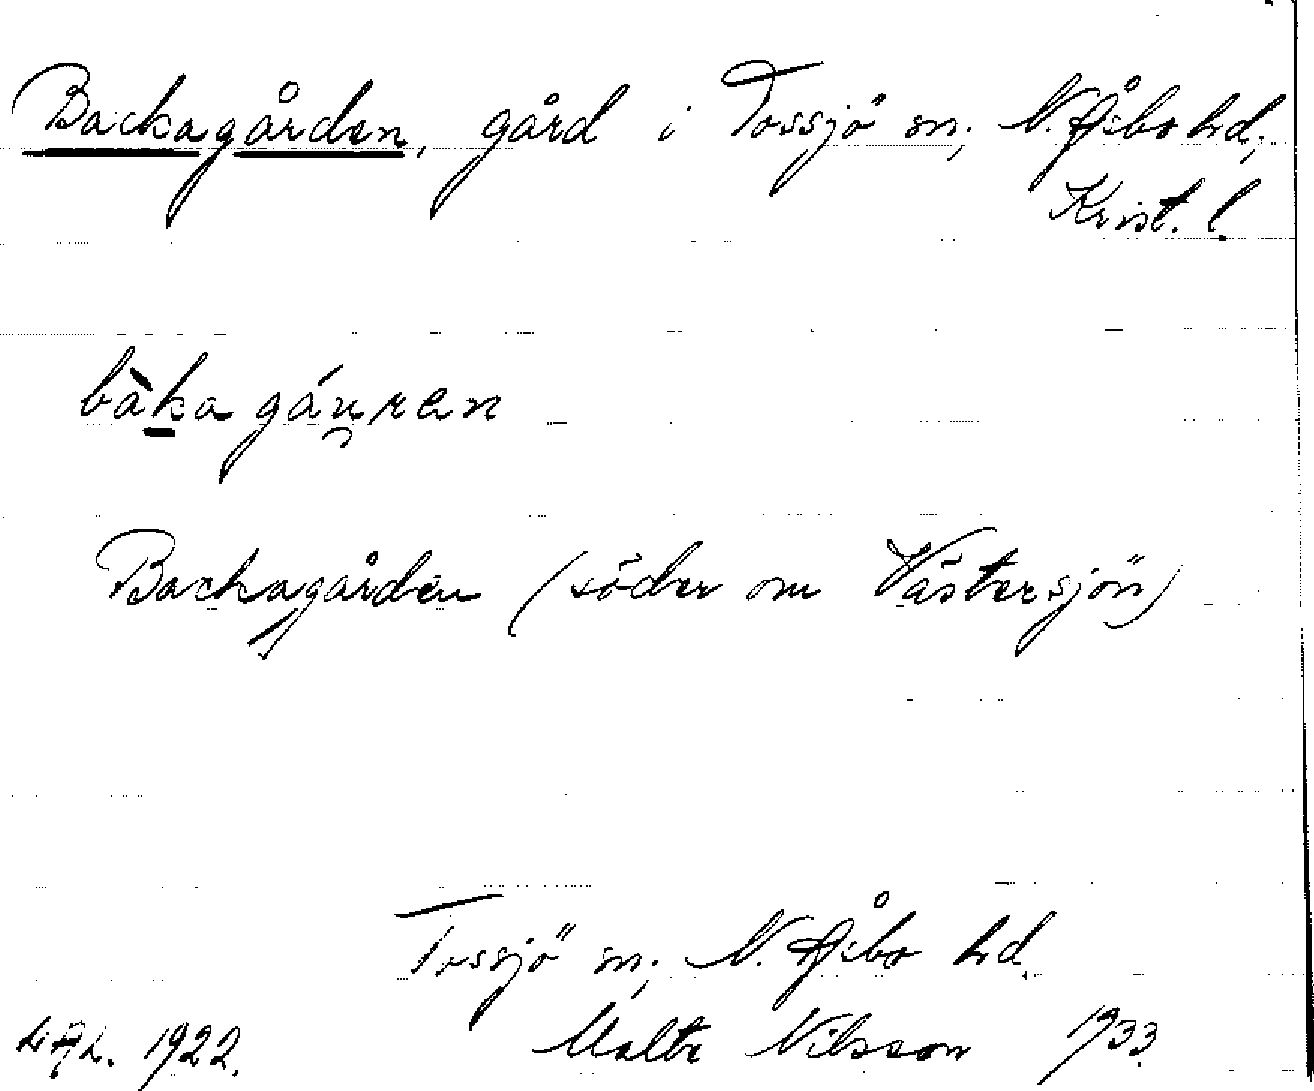 Backagården, gård i Tossjö sn; N. Åsbo hd;
Krist. l.
bàka gáu̯ren
Backagården (söder om Västersjön)
Tossjö sn; N. Åsbo hd.
LAL. 1922. Malte Nilsson 1933.